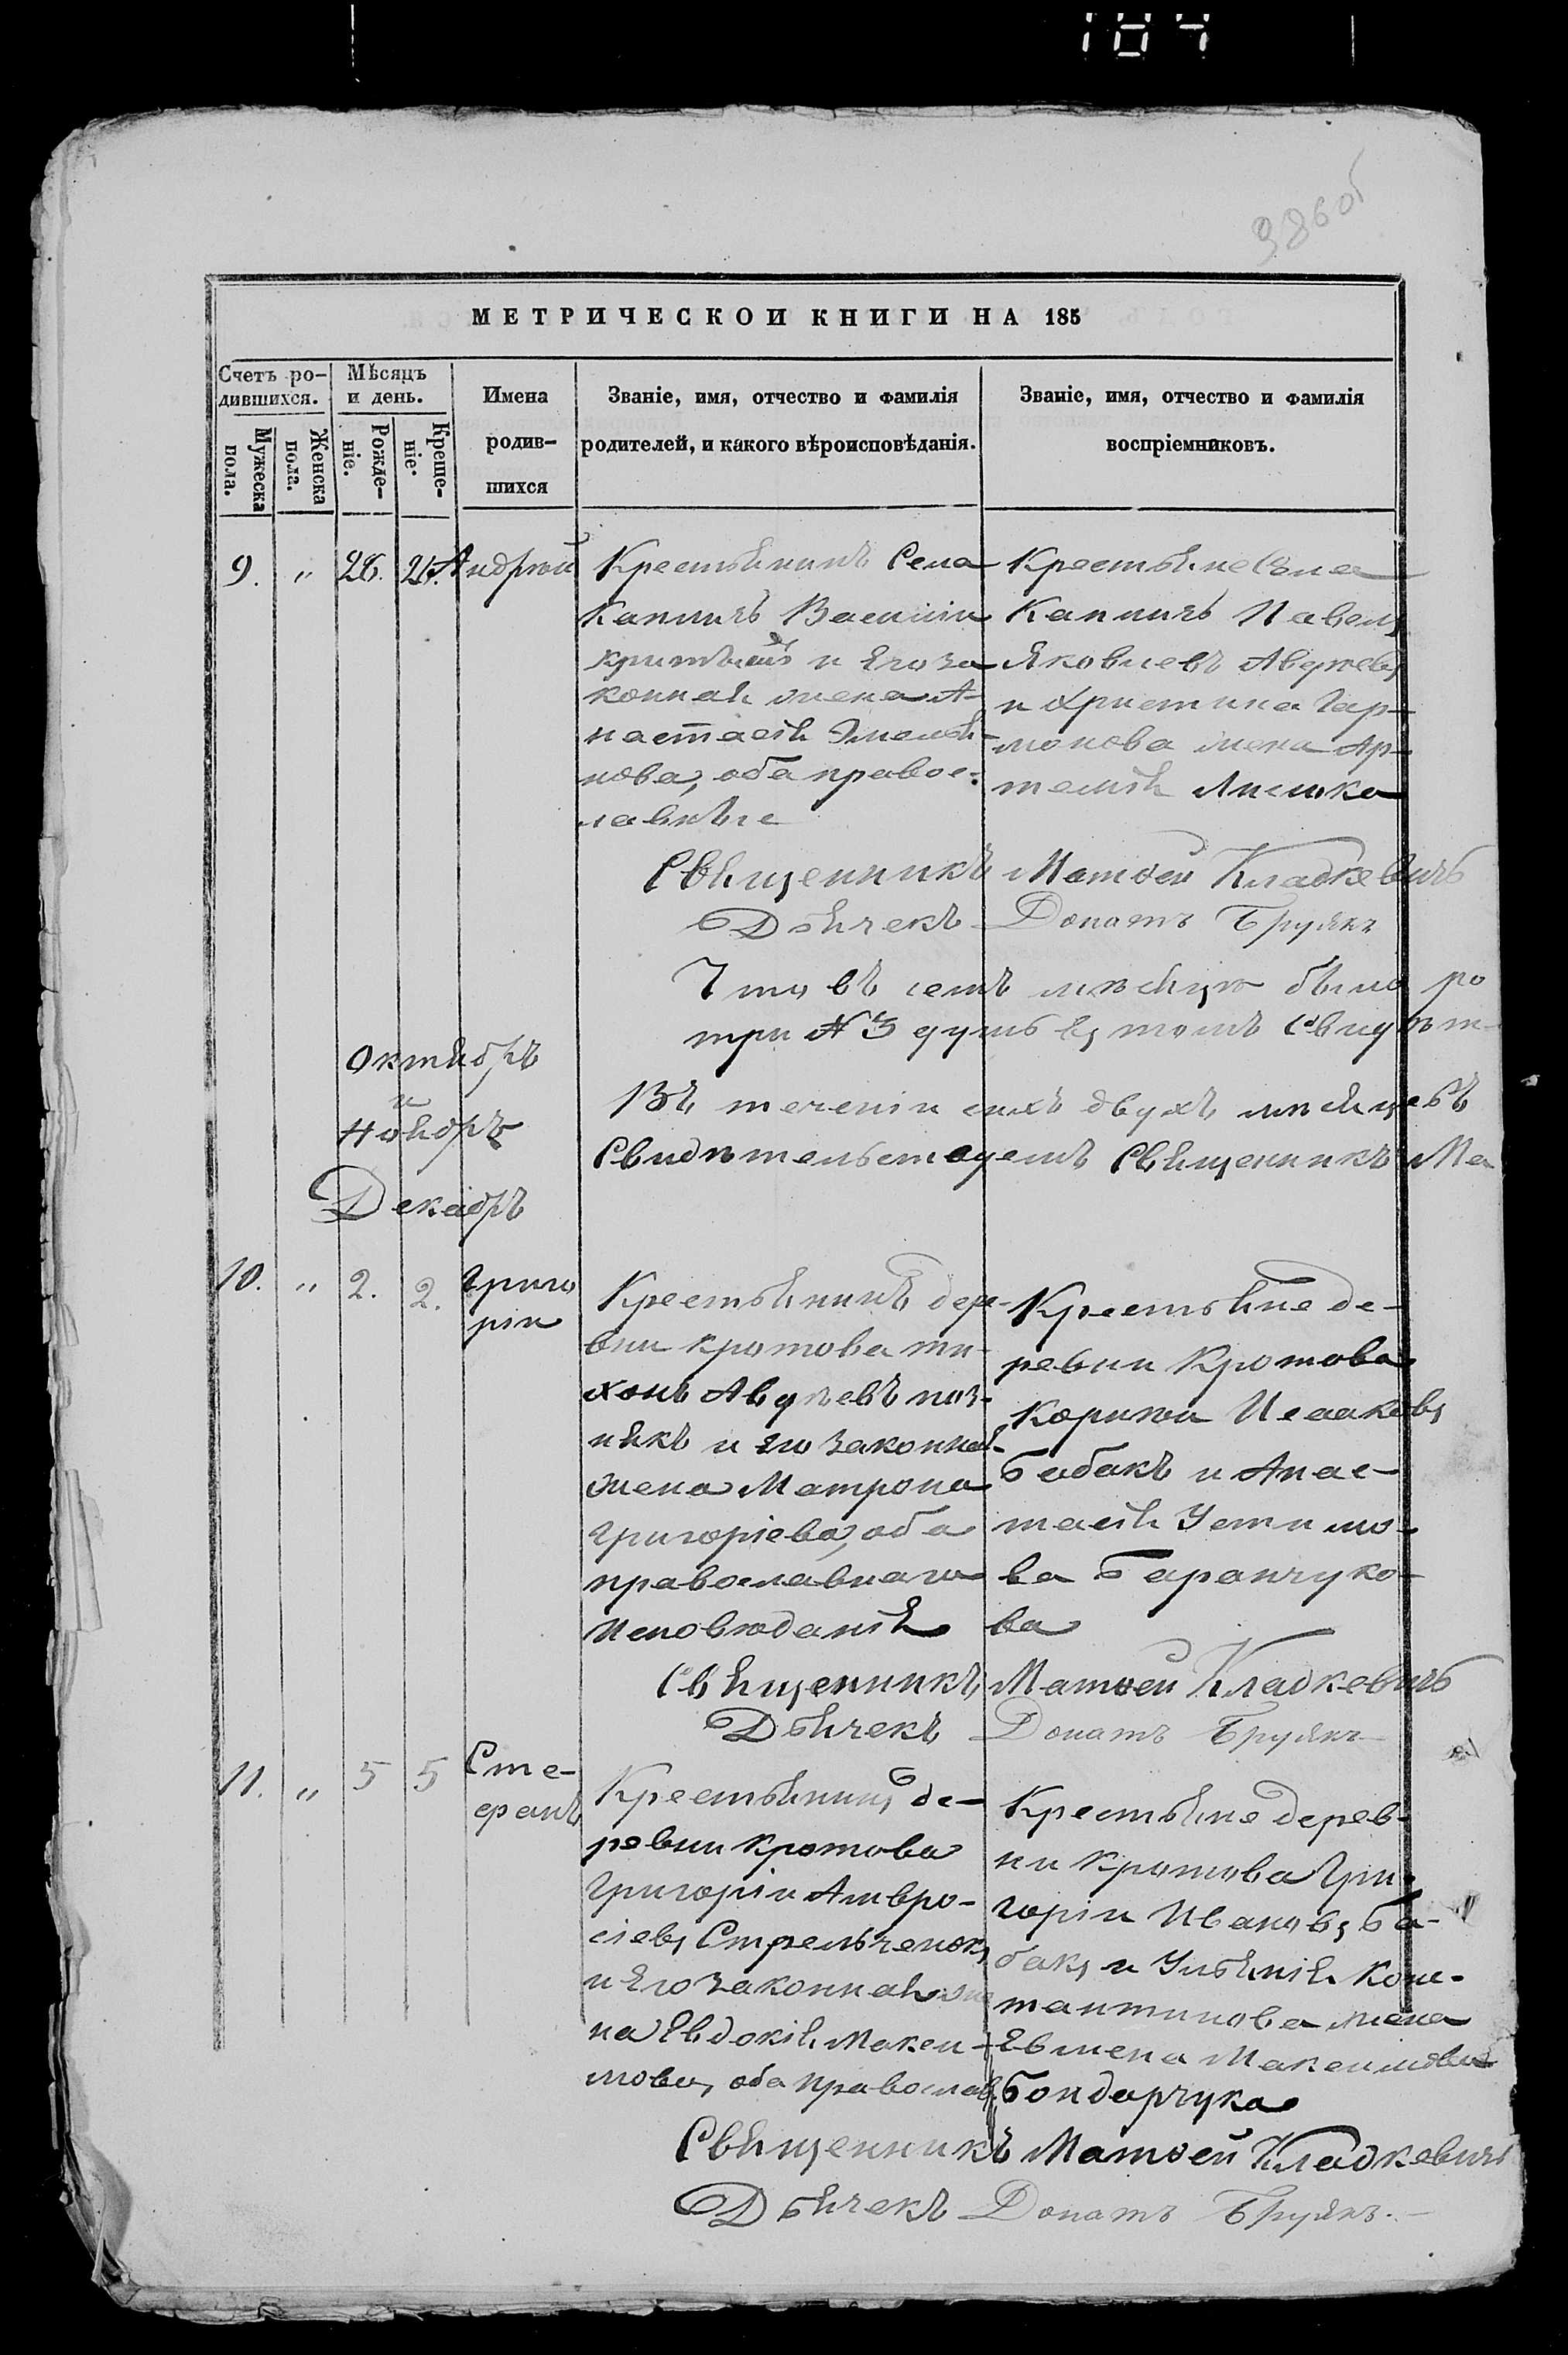 184
386об
МЕТРИЧЕСКОИ КНИГИ НА 185
Счетъ ро-
дившихся.
Мужеска
пола.
Женска
пола.
Мѣсяцъ
и день.
Рожде-
ніе.
Креще-
ніе.
Имена
родив-
шихся
Званіе, имя, отчество и фамилія
родителей, и какого вѣроисповѣданія.
Званіе, имя, отчество и фамилія
воспріемниковъ.
9. " 26. Андрѣй
Крестьянинъ Села
Капличъ Василіи
и Его за
конная жена А-
настасія Емелья-
нова, оба правос-
лавные
Крестьяне Села
Капличъ Павелъ
Яковлевъ Авдѣевъ
и Христина Гар-
монова жена Ар-
темія
Священникъ Матѳей Кладкевичъ
Дьячекъ Донатъ Брулякъ
Что въ семъ мѣсяцѣ было ро
три № 3 душъ въ томъ Свидѣт-
Октябръ
и
Ноябръ
Въ теченіи сихъ двухъ мѣсяцевъ
Свидѣтельствуемъ Священникъ Ма
Декабръ
10. " 2. 2. Григо
ріи
Крестьянинъ дер-
вни Кротова ти-
хонъ Авдѣевъ поз-
някъ и его законная
жена Матрона
Григоріева, оба
православнаго
Исповѣданія
Крестьяне де-
ревни Кротова
Исааковъ
Бабакъ и Анас-
тасія Устимо-
ва Баранчуко-
ва
Священникъ Матѳей Кладкевичъ
Дьячекъ Донатъ Брулякъ
11. " 5 5 Сте-
фанъ
Крестьянинъ де-
ревни Кротова
Григоріи Амвро-
сіевъ Стрельченокъ
и Его законная же
на Евдокія Макси-
мова, оба православ.
Крестьяне дерев-
ни Кротова Гри-
горіи Ивановъ Ба-
бакъ и Ульянія Конс-
тантинова жена
Евмена Максимова
Бондарчука
Священникъ Матѳей Кладкевичъ
Дьячекъ Донатъ Брулякъ.